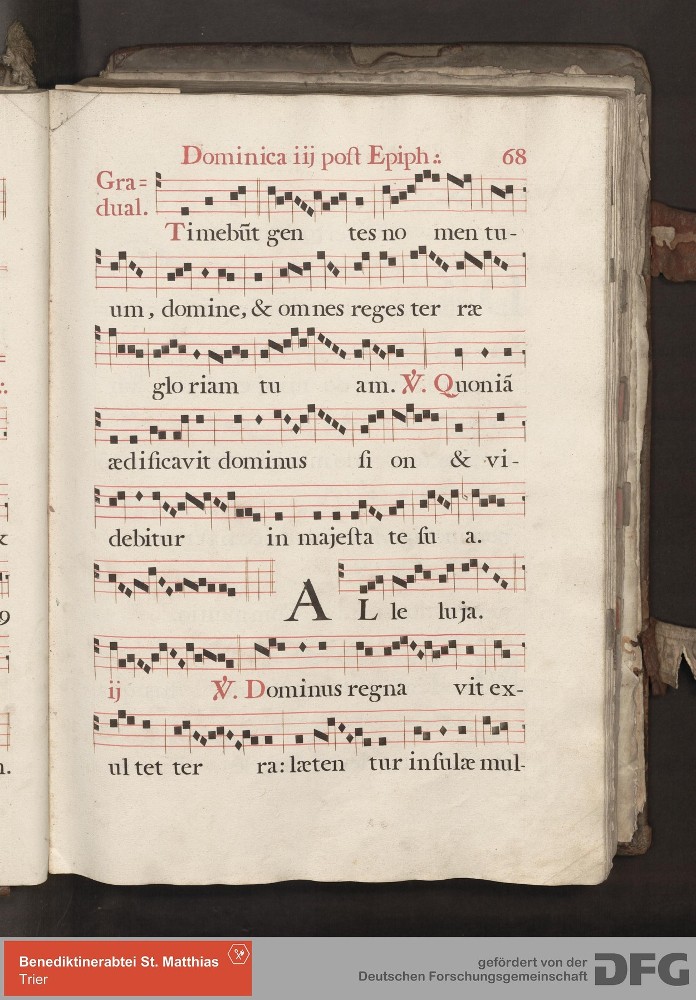 Dominica iij poſt Epiph.:. 68
Gra=
dual.
Timebūt gen tes no men tu-
um, domine, & omnes reges ter ræ
glo riam tu am. ℣. Quoniā
ædificavit dominus ſi on & vi-
debitur in majeſta te ſu a.
A L le luja.
ij ℣. Dominus regna vit ex-
ul tet ter ra: læten tur inſulæ mul-
Benediktinerabtei St. Matthias
Trier
gefördert von der
Deutschen Forschungsgemeinschaft
DFG